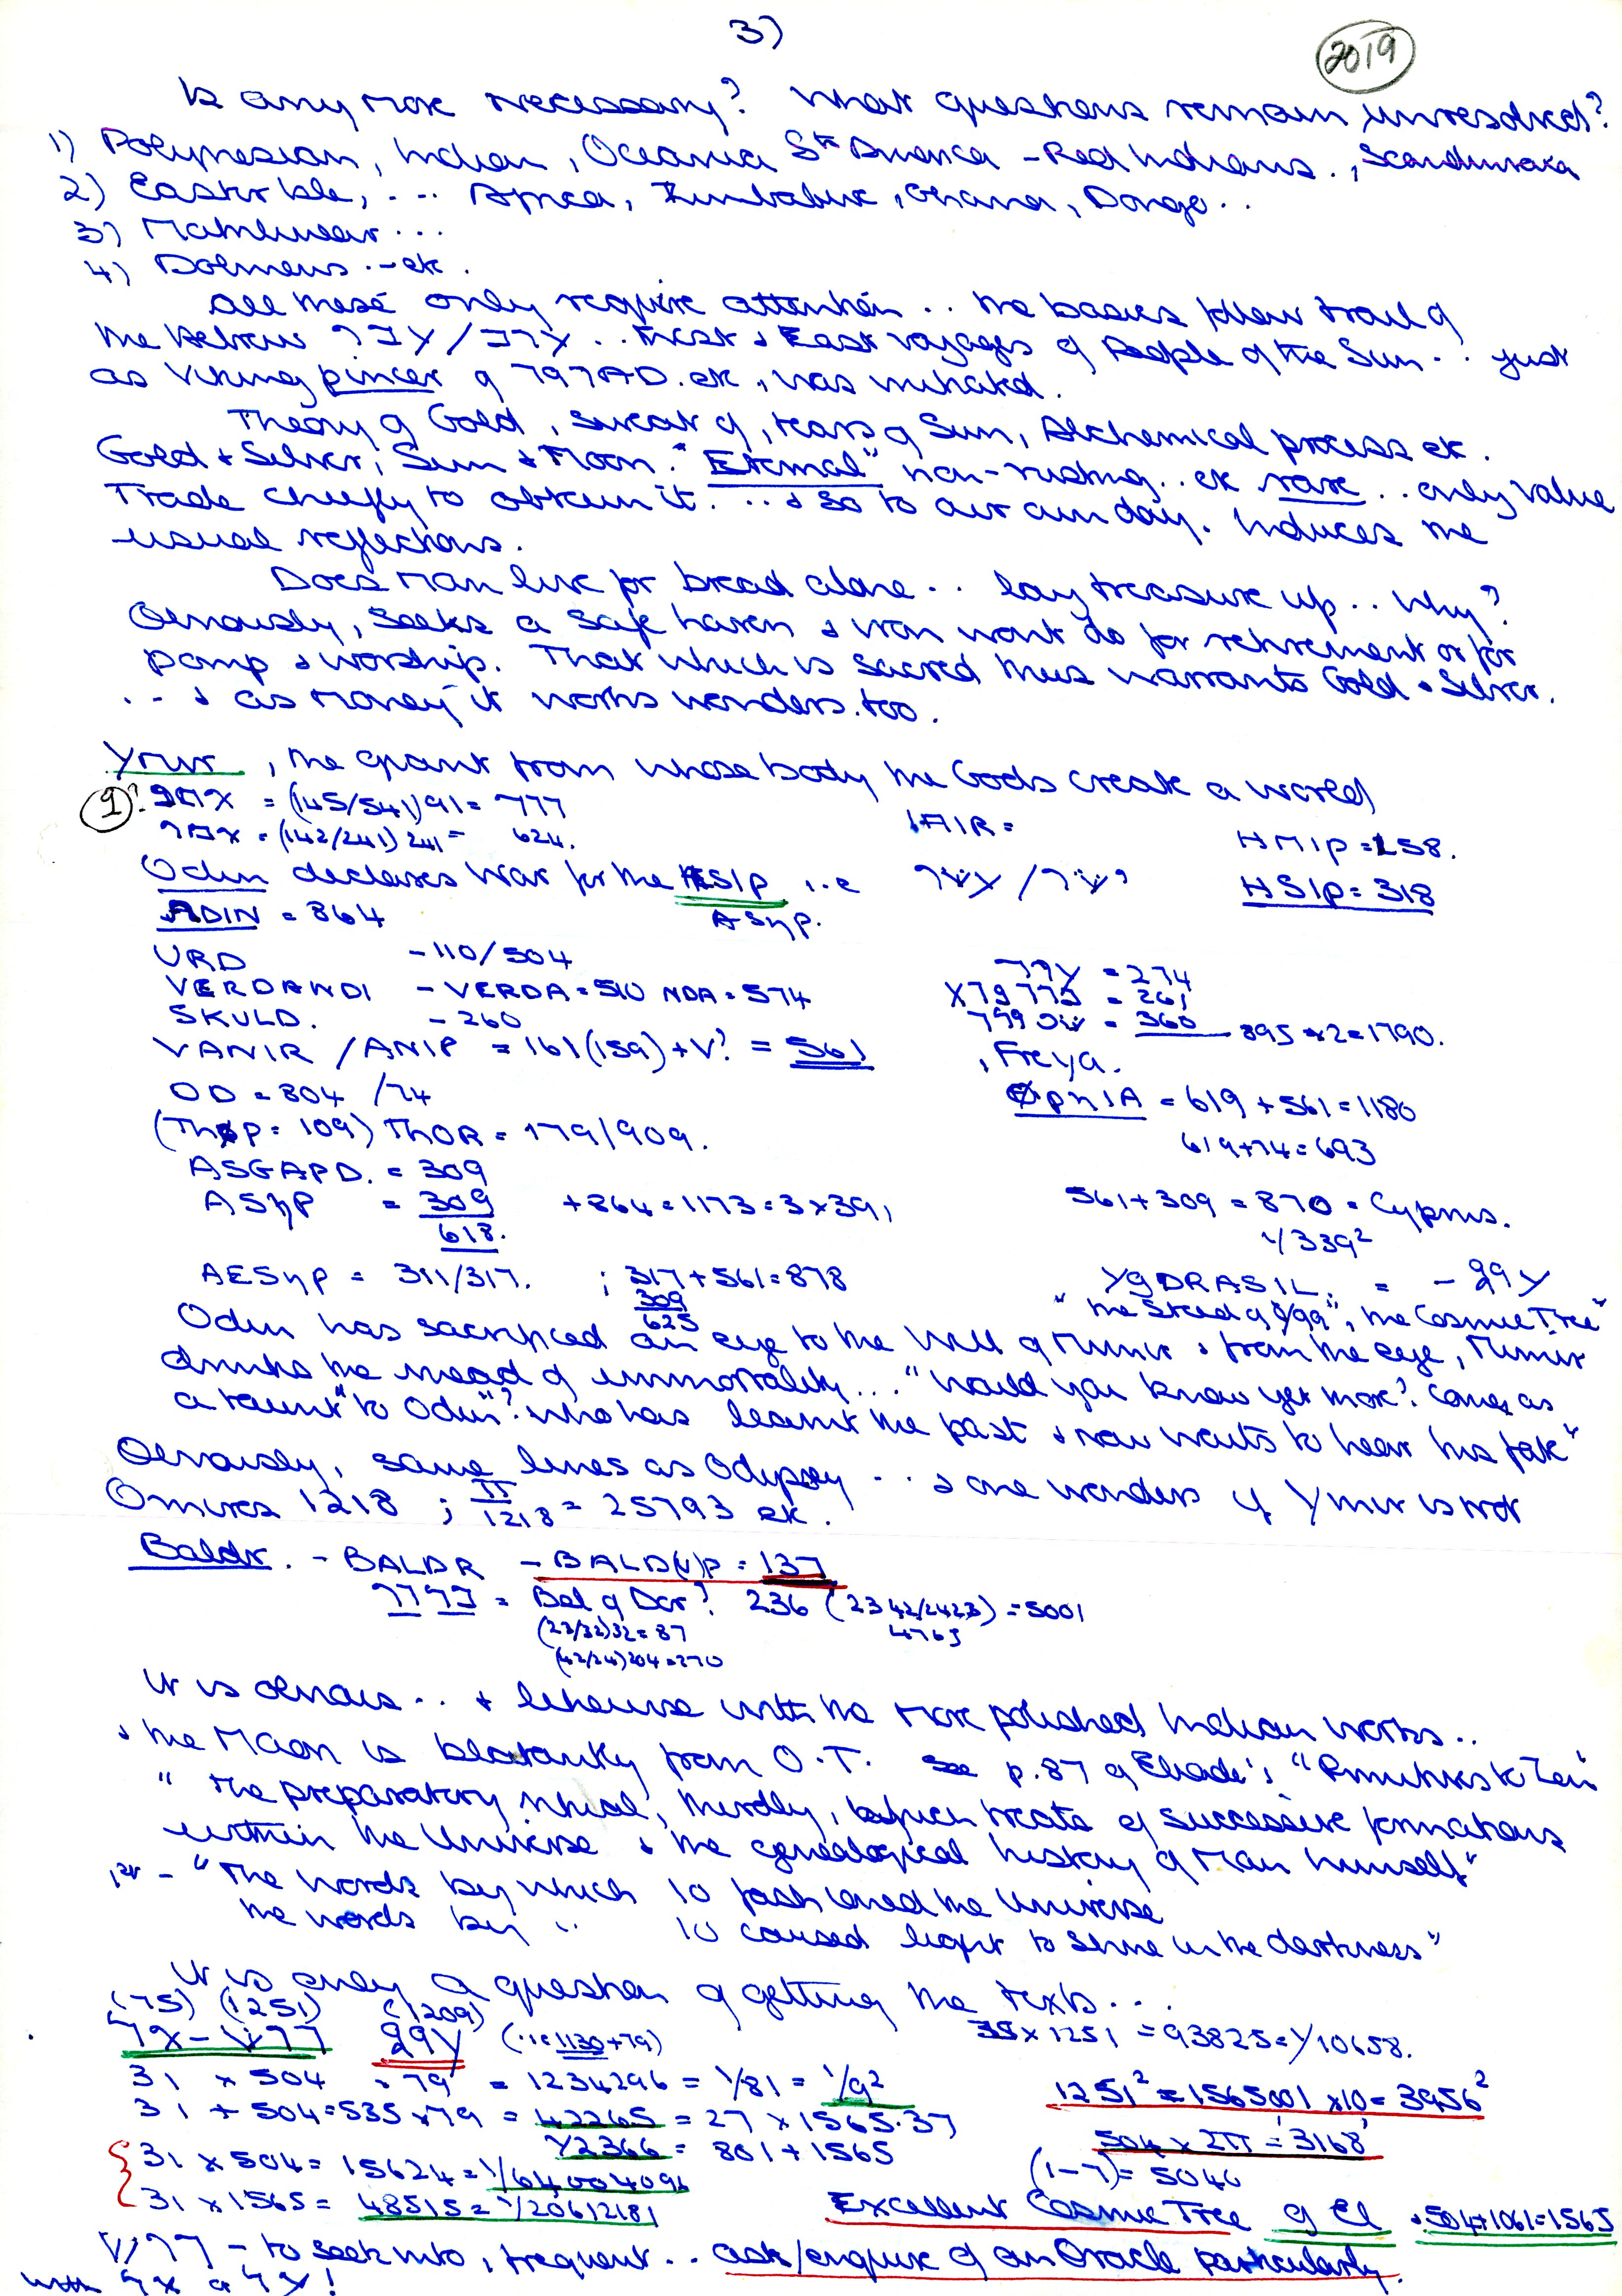 3)
2019
Is any more necessary? What questions remain unresolved?
1) Polynesian, Indian, Oceania Sth America - Red Indians., Scandinavia
2) Easter Isle, ... Africa, Zimbabwe, Ghana, Dongo..
3) Matrilinear...
4) Dolmens.. etc.
All these only require attention.. the basics follow trail of
the Hebrew .. West & East voyages of People of the Sun.. just
as Viking pincer of 797AD. etc, was initiated.
Theory of Gold, sweat of, tears of Sun, Alchemical process etc.
Gold & Silver; Sun & Moon. "Eternal" non-rusting.. etc rare.. only value
Trade chiefly to obtain it. ... & so to our own day. Induces the
usual reflections.
Does Man live for bread alone.. lay treasure up.. Why?
Obviously, seeks a safe haven & iron wont do for retirement or for
pomp & worship. That which is sacred thus warrants Gold & Silver.
... & as money it works wonders.too.
Ymir, the giant from whose body the Gods create a world
(9)? = (145/541)91= 777
= (142/241)241= 624.
HMIP =158.
Odin declares War for the ASIP i.e
HSIP = 318
ADIN = 864
ASηP.
URD -110/504
= 274
VERDANDI - VERDA = 510 NDA = 574
= 261
SKULD. - 260
= 360 895 x2=1790.
VANIR / ANIP = 161(159)+V? = 561
, Freya.
OD = 804 /74
ΦPηIA = 619 + 561 = 1180
(ThP = 109) ThOR = 179/909.
619+74=693
ASGAPD. = 309
ASηP = 309 +864=1173=3x391
618.
561+309 = 870 = Cyprus.
1/339²
AESηP = 311/317. ; 317+561=878
309
625
YgDRASIL. = -
"the Steed of Ygg", the Cosmic Tree"
Odin has sacrificed an eye to the Well of Mimir & from the eye, Mimir
drinks the mead of immortality... "Would you know yet more? comes as
a taunt "to Odin"? who has learnt the past & now waits to hear his fate"
Obviously, same lines as Odyssey ... & one wonders if Ymir is not
Omiros 1218 ; π/1218 = 25793 etc.
Baldr. - BALDR - BALD(η)P = 137
= Bel of Dor? 236 (2342/2423) = 5001
(23/32)32=87 4765
(42/24)204=270
It is obvious.. & likewise with the more polished Indian works..
& the Maori is blatantly from O.T. see p.87 of Eliade's "Primitives to Zen"
" the preparatory ritual, thirdly, which treats of successive formations
within the Universe & the genealogical history of Man himself"
1st - "The words by which Io fashioned the Universe
the words by " Io caused light to shine in the darkness"
It is only a question of getting the texts...
(75) (1251) (1209)
(i.e 1130+79)
75x1251 = 93825=1/10658.
31 x 504 x 79 = 1234296 = 1/81 = 1/9²
1251² = 1565001 x10 = 3956²
31 + 504=535 x79 = 42265 = 27 x 1565.37
1/2366 = 801 + 1565
504 x 2π = 3168
31 x 504 = 15624 = 1/64004096
(1-7)= 5040
31 x 1565 = 48515 = 1/20612181
Excellent Cosmic Tree of El & 504+1061=1565
- to seek into, frequent.. ask/enquire of an Oracle particularly.